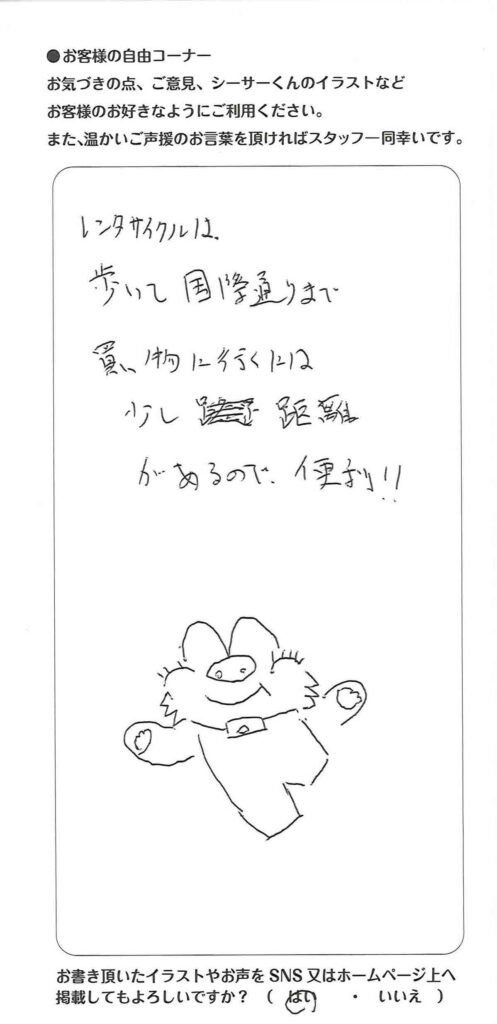 ●お客様の自由コーナー
お気づきの点、ご意見、シーサーくんのイラストなど
お客様のお好きなようにご利用ください。
また、温かいご声援のお言葉を頂ければスタッフ一同幸いです。
レンタサイクルは、
歩いて 国際通りまで
買い物に行くには
少し 距離
があるので、便利!!
お書き頂いたイラストやお声を SNS 又はホームページ上へ
掲載してもよろしいですか？ ( はい ・ いいえ )